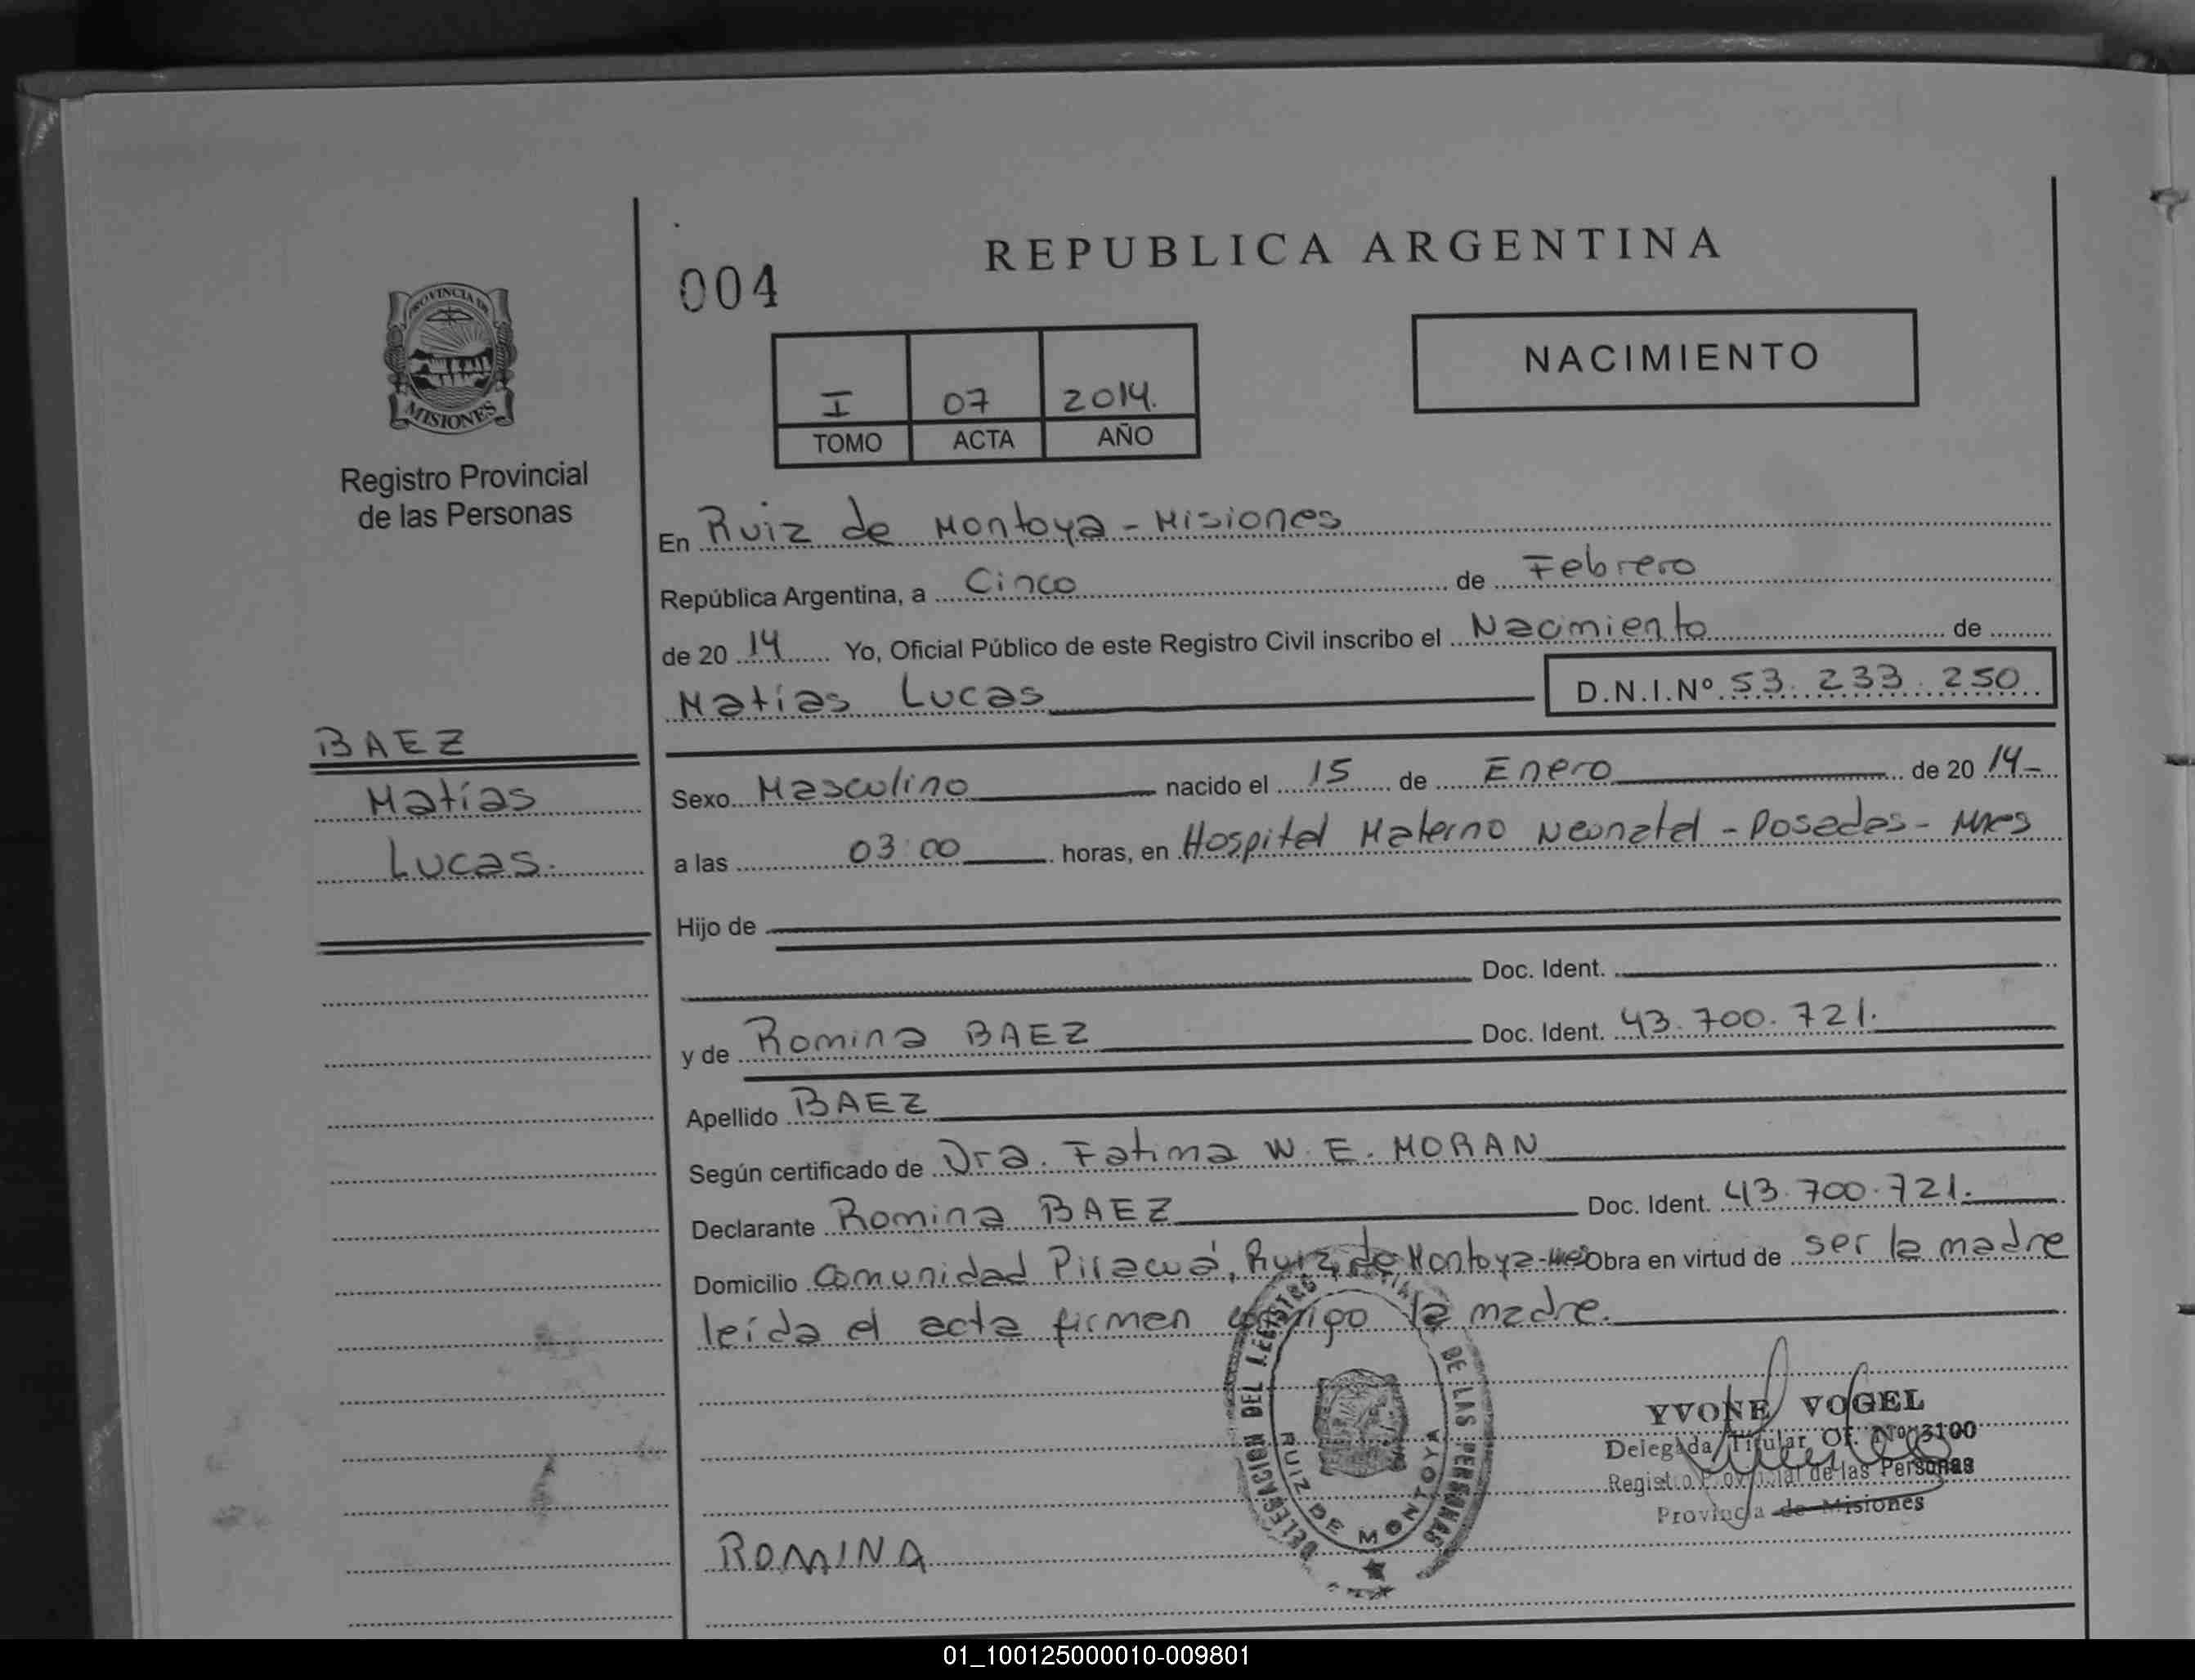 REPUBLICA ARGENTINA
004
NACIMIENTO
I 07 2014.
TOMO ACTA AÑO
PROVINCIA DE
MISIONES
Registro Provincial
de las Personas
En Ruiz de Montoya - Misiones
República Argentina, a Cinco de Febrero
de 20 14 Yo, Oficial Público de este Registro Civil inscribo el Nacimiento de
Matías Lucas D.N.I.Nº 53. 233. 250
BAEZ
Matías
Lucas.
Sexo Masculino nacido el 15 de Enero de 20 14-
a las 03:00 horas, en Hospital Materno Neonatal - Posadas - Mnes
Hijo de
Doc. Ident.
y de Romina BAEZ Doc. Ident. 43.700.721.
Apellido BAEZ
Según certificado de Dra. Fatima W. E. MORAN
Declarante Romina BAEZ Doc. Ident. 43.700.721.
Domicilio Comunidad Piracuá, Ruiz de Montoya- Obra en virtud de ser la madre
leída el acta firman conmigo la madre.
DELEGACION DEL REGISTRO DE LAS PERSONAS
RUIZ DE MONTOYA
YVONE VOGEL
Delegada Titular Of. Nº 3100
Registro Provincial de las Personas
Provincia de Misiones
ROMINA
01_100125000010-009801